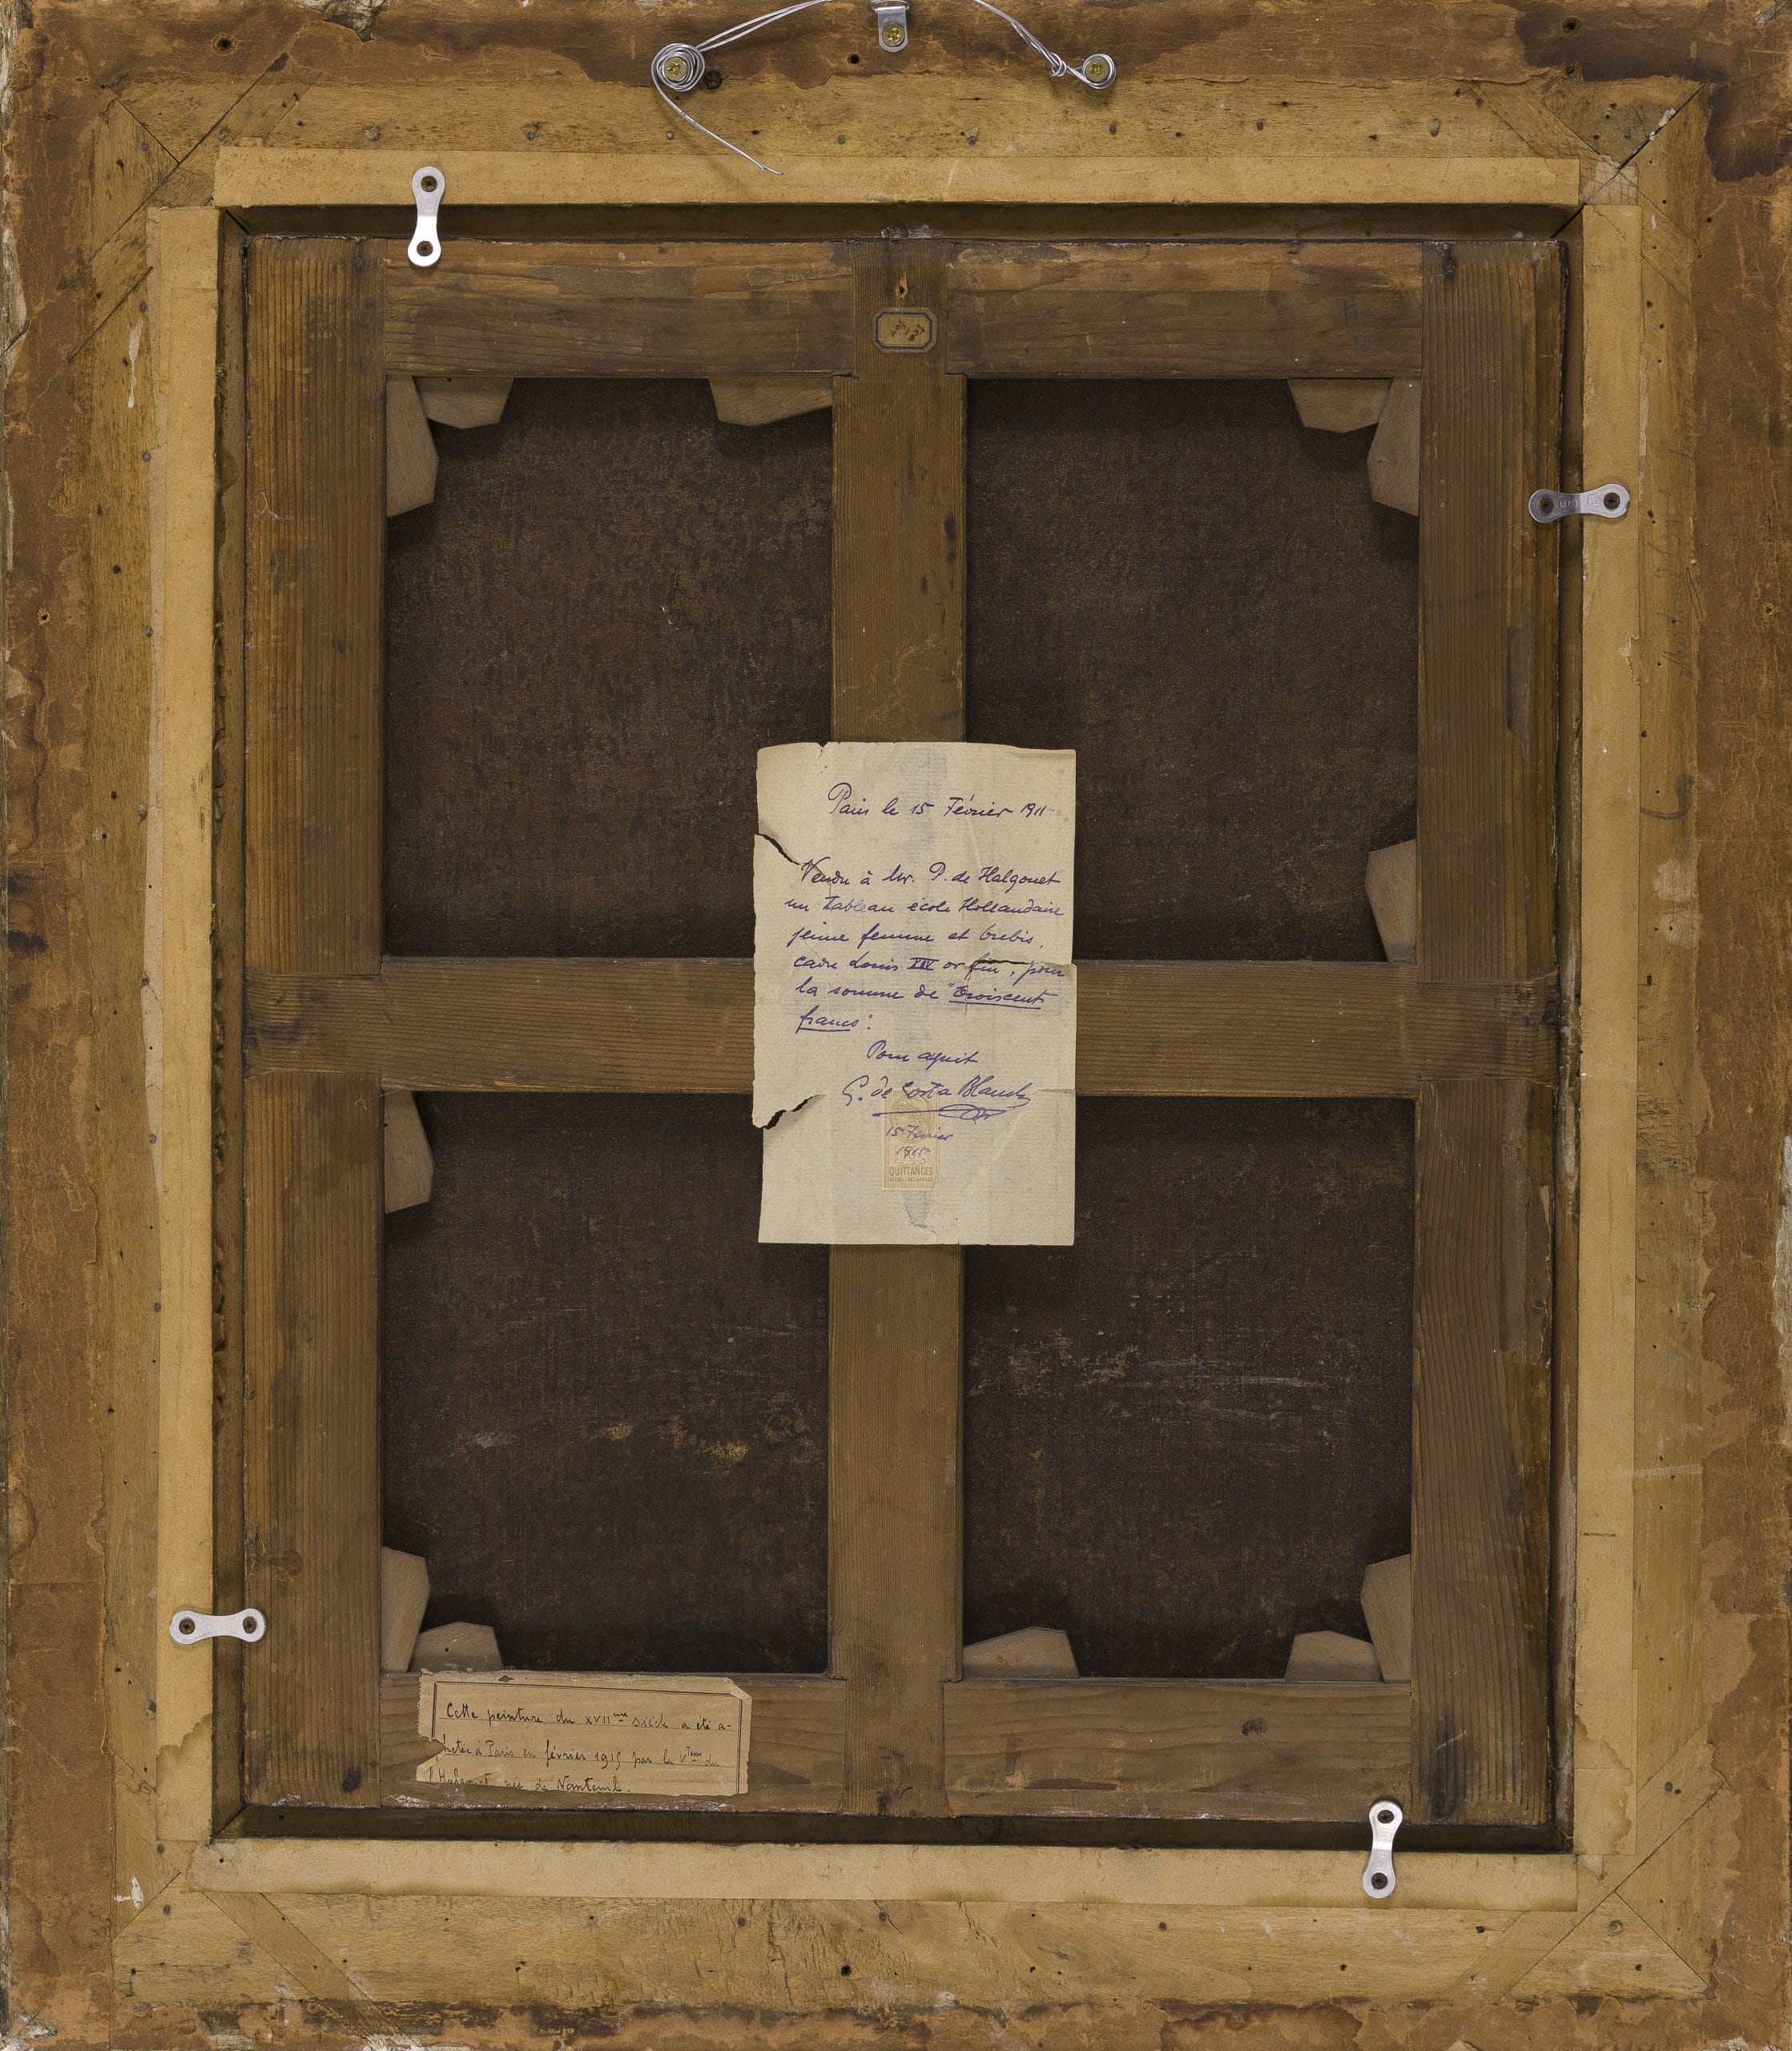 Paris le 15 Février 1911
Vendu à Mr. P. de Halgouet
un tableau école Hollandaise
jeune femme et brebis,
cadre Louis XIV or fin, pour
la somme de "Troiscents
francs".
Pour aquit
G. de Costa Blanch
15 Fevrier
QUITTANCES
Cette peinture du XVIIme siècle a été a-
chetée à Paris en février 1915 par la Vtesse du
Halgouet née de Nanteuil.